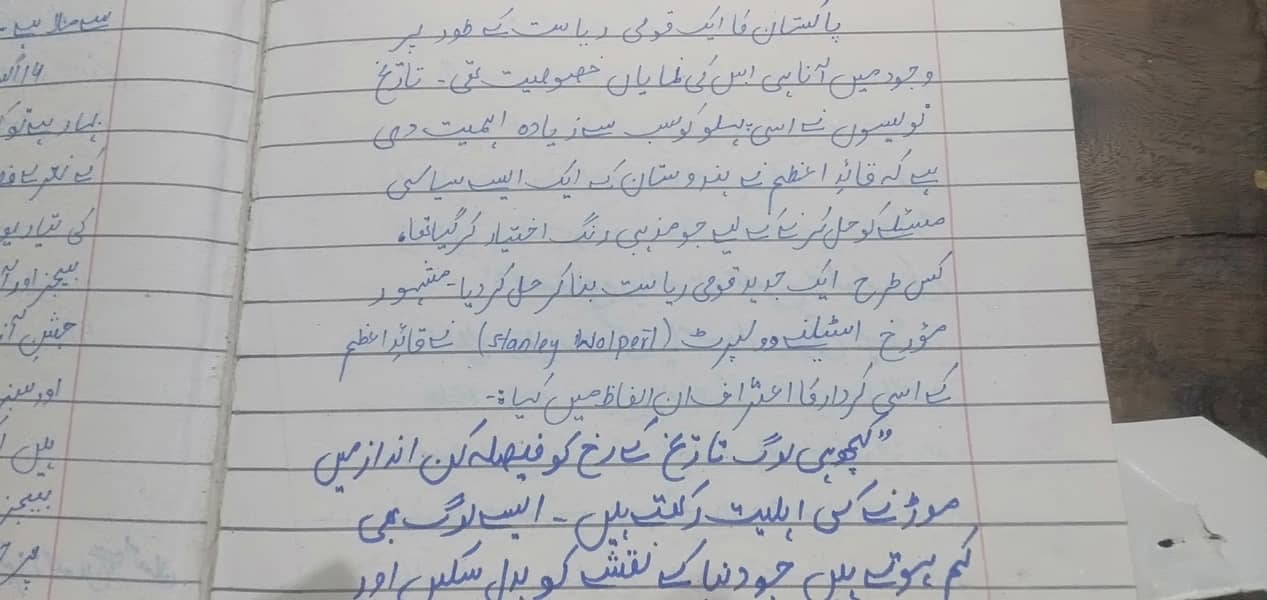 پاکستان کا ایک قومی ریاست کے طور پر
وجود میں آنا ہی اس کی نمایاں خصوصیت تھی۔ تاریخ
نویسوں نے اسی پہلو کو سب سے زیادہ اہمیت دی
ہے کہ قائدِ اعظم نے ہندوستان کے ایک ایسے سیاسی
مسئلے کو حل کرنے کے لیے جو مذہبی رنگ اختیار کر گیا تھا،
کس طرح ایک جدید قومی ریاست بنا کر حل کر دیا۔ مشہور
مؤرخ اسٹینلے وولپرٹ (Stanley Wolpert) نے قائدِ اعظم
کے اسی کردار کا اعتراف ان الفاظ میں کیا ہے:-
”کچھ ہی لوگ تاریخ کے رخ کو فیصلہ کن انداز میں
موڑنے کی اہلیت رکھتے ہیں۔ ایسے لوگ بھی
کم ہوتے ہیں جو دنیا کے نقشے کو بدل سکیں اور
سے ملا ہے۔
14
کے نعرے
کی تیاریو
بیجز اور
جشنِ
اور سبز
ہیں
بیجز